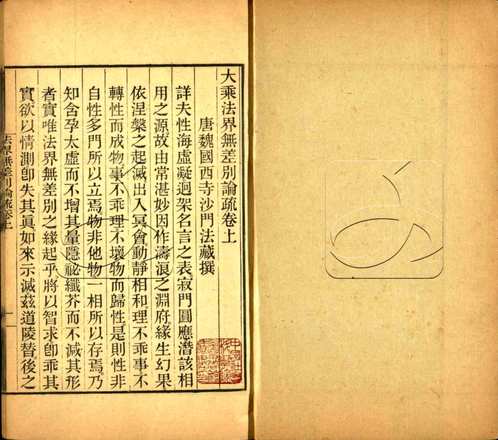 大乘法界無差別論疏卷上
唐魏國西寺沙門法藏撰
詳夫性海虛凝迥架名言之表寂門圓應潛該相
用之源故由常湛妙因作濤浪之淵府緣生幻果
依涅槃之起滅出入冥會動靜相和理不乖事不
轉性而成物事不乖理不壞物而歸性是則性非
自性多門所以立焉物非他物一相所以存焉乃
知含孕太虛而不增其量隱祕纖芥而不減其形
者實唯法界無差別之緣起乎將以智求卽乖其
實欲以情測卽失其眞如來示滅茲道陵替後之